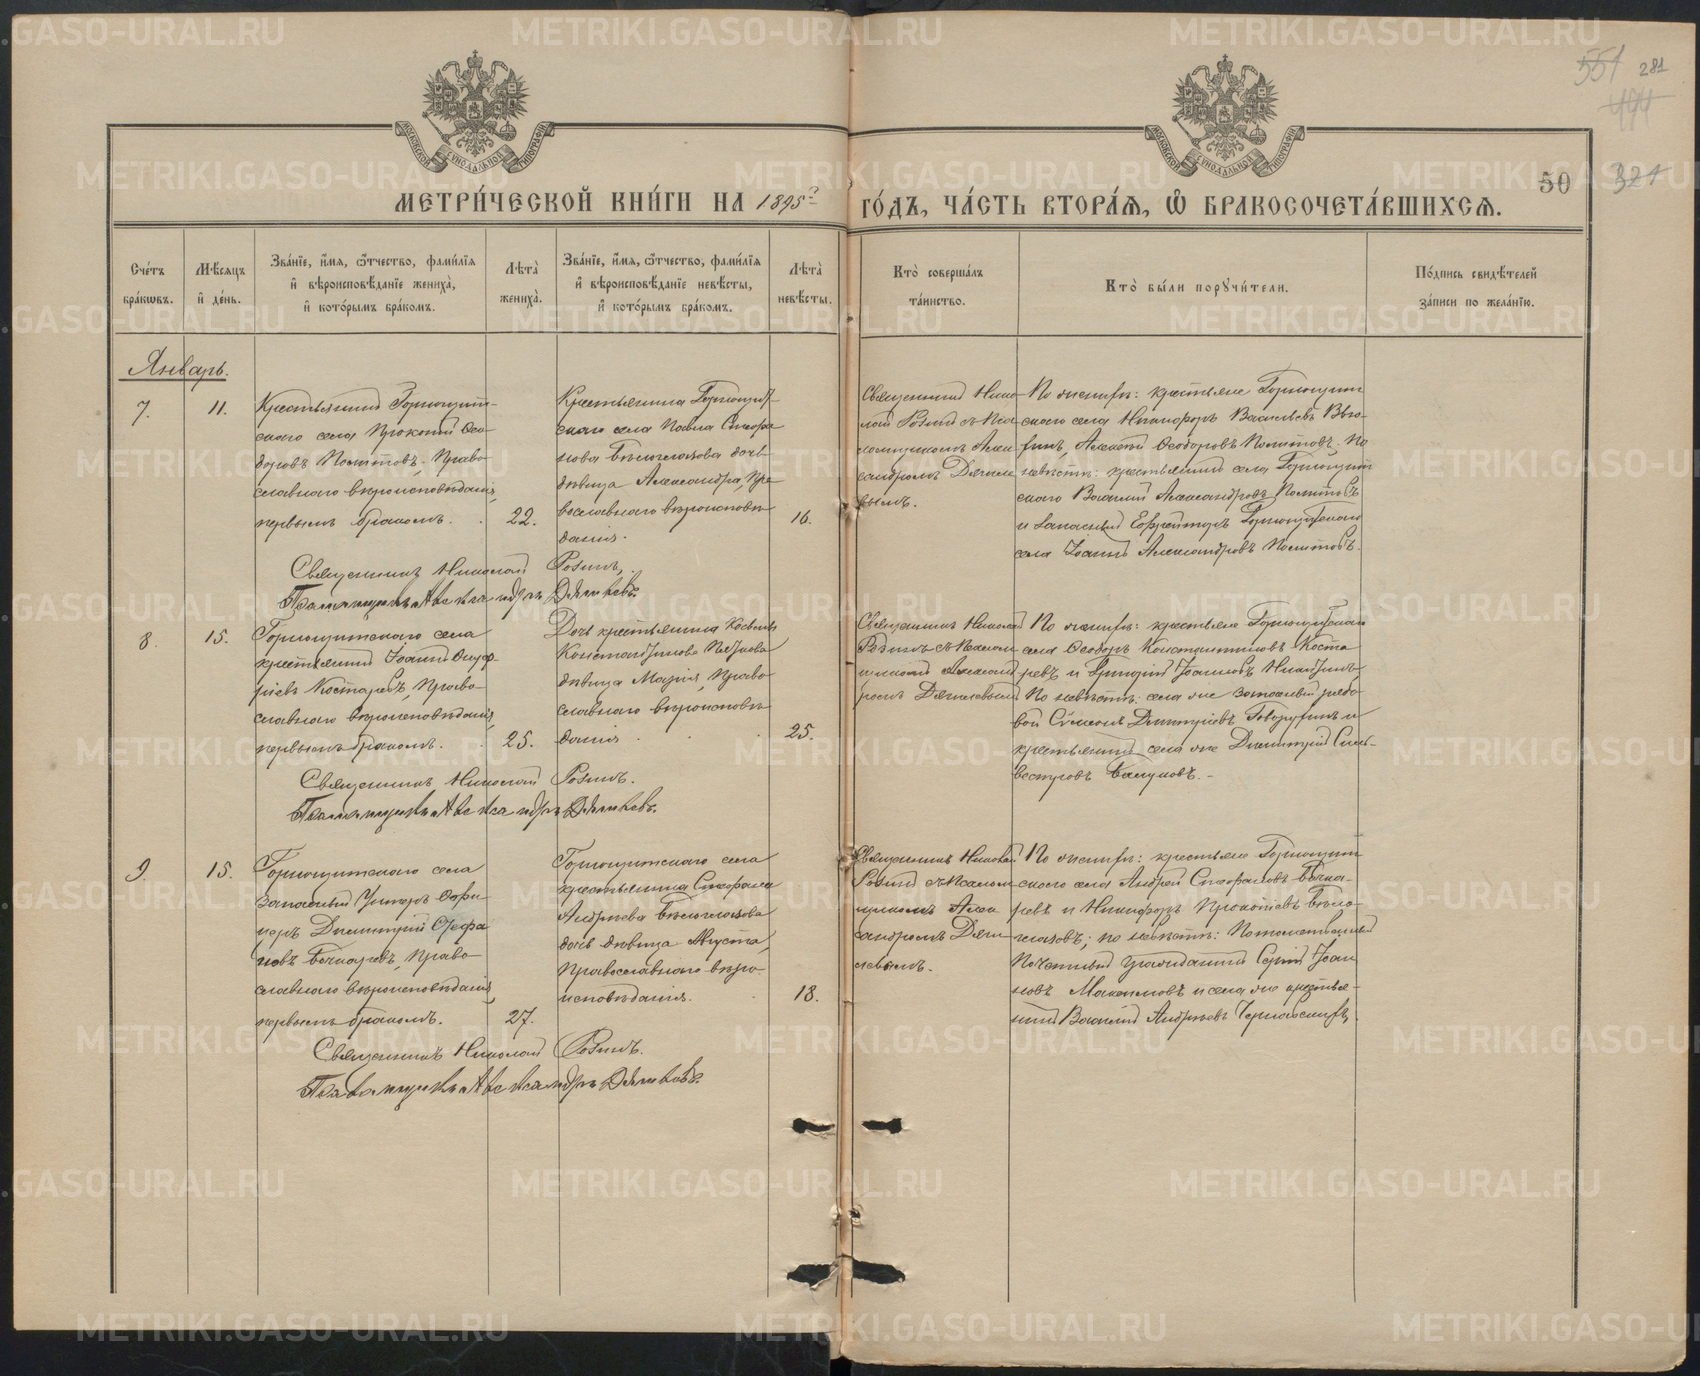 551 281
444
МЕТРИ́ЧЕСКОЙ КНИ́ГИ НА 1895 г
ГО́ДЪ, ЧА́СТЬ ВТОРА́Ѧ, Ѽ БРАКОСОЧЕТА́ВШИХСѦ.
50 321
Сче́тъ бра́кѡвъ.
Мѣ́сѧцъ и҆ де́нь.
Зва́нїе, и҆́мѧ, ѻ҆́тчество, фами́лїѧ и҆ вѣроисповѣ́данїе жениха̀, и҆ кото́рымъ бра́комъ.
Лѣта̀ жениха̀.
Зва́нїе, и҆́мѧ, ѻ҆́тчество, фами́лїѧ и҆ вѣроисповѣ́данїе невѣ́сты, и҆ кото́рымъ бра́комъ.
Лѣта̀ невѣ́сты.
Кто̀ соверша́лъ та́инство.
Кто̀ бы́ли порꙋчи́тели.
По́дпись свидѣ́телей за́писи по жела́нїю.
Январь.
7. 11.
Крестьянинъ Горнощит-
скаго села Прокопій Ѳео-
доровъ Політовъ, Право-
славнаго вѣроисповѣданія,
первымъ бракомъ. 22.
Крестьянина Горнощит-
скаго села Павла Стефа
нова Бѣлоглазова дочь
дѣвица Александра, Пра
вославнаго вѣроисповѣ
данія. 16.
Священникъ Нико-
лай Розинъ съ Пса
ломщикомъ Алек
сандромъ Дягиле
вымъ.
По женихѣ: крестьяне Горнощит
скаго села Никифоръ Васильевъ Вью-
хинъ, Алексѣй Ѳеодоровъ Политовъ. По
невѣстѣ: крестьянинъ села Горнощит
скаго Василій Александровъ Политовъ
и Запасный Ефрейторъ Горнощитскаго
села Іоаннъ Александровъ Политовъ.
Священникъ Николай Розинъ.
Псаломщикъ Александръ Дягилевъ.
8. 15.
Горнощитскаго села
крестьянинъ Іоаннъ Онуф-
ріевъ Костаревъ, Право-
славнаго вѣроисповѣданія,
первымъ бракомъ. 25.
Дочь крестьянина
Константинова
дѣвица Марія, Право
славнаго вѣроисповѣ
данія 25.
Священникъ Николай
Розинъ съ Псалом
щикомъ Александ
ромъ Дягилевымъ
По женихѣ: крестьяне Горнощитскаго
села Ѳеодоръ Константиновъ Коста
ревъ и Григорій Іоанновъ
По невѣстѣ: села же запасный рядо
вой Сѵмеонъ Димитріевъ и
крестьянинъ села же Димитрій Силь-
вестровъ
Священникъ Николай Розинъ.
Псаломщикъ Александръ Дягилевъ.
9. 15.
Горнощитскаго села
Запасный Унтеръ Офи
церъ Димитрій Стефа
новъ Бочкаревъ, Право
славнаго вѣроисповѣданія,
первымъ бракомъ. 27.
Горнощитскаго села
крестьянина Стефана
Андреева Бѣлоглазова
дочь дѣвица Августа,
Православнаго вѣро
исповѣданія. 18.
Священникъ Николай
Розинъ съ Псалом
щикомъ Алек
сандромъ Дяги
левымъ.
По женихѣ: крестьяне Горнощит
скаго села Андрей Стефановъ Бочка-
ревъ и Никифоръ Прокопіевъ Бѣло-
глазовъ; по невѣстѣ: Потомственный
Почетный Гражданинъ Сергій Іоан
новъ Максимовъ и села же крестья-
нинъ Василій Андреевъ
Священникъ Николай Розинъ.
Псаломщикъ Александръ Дягилевъ.
METRIKI.GASO-URAL.RU